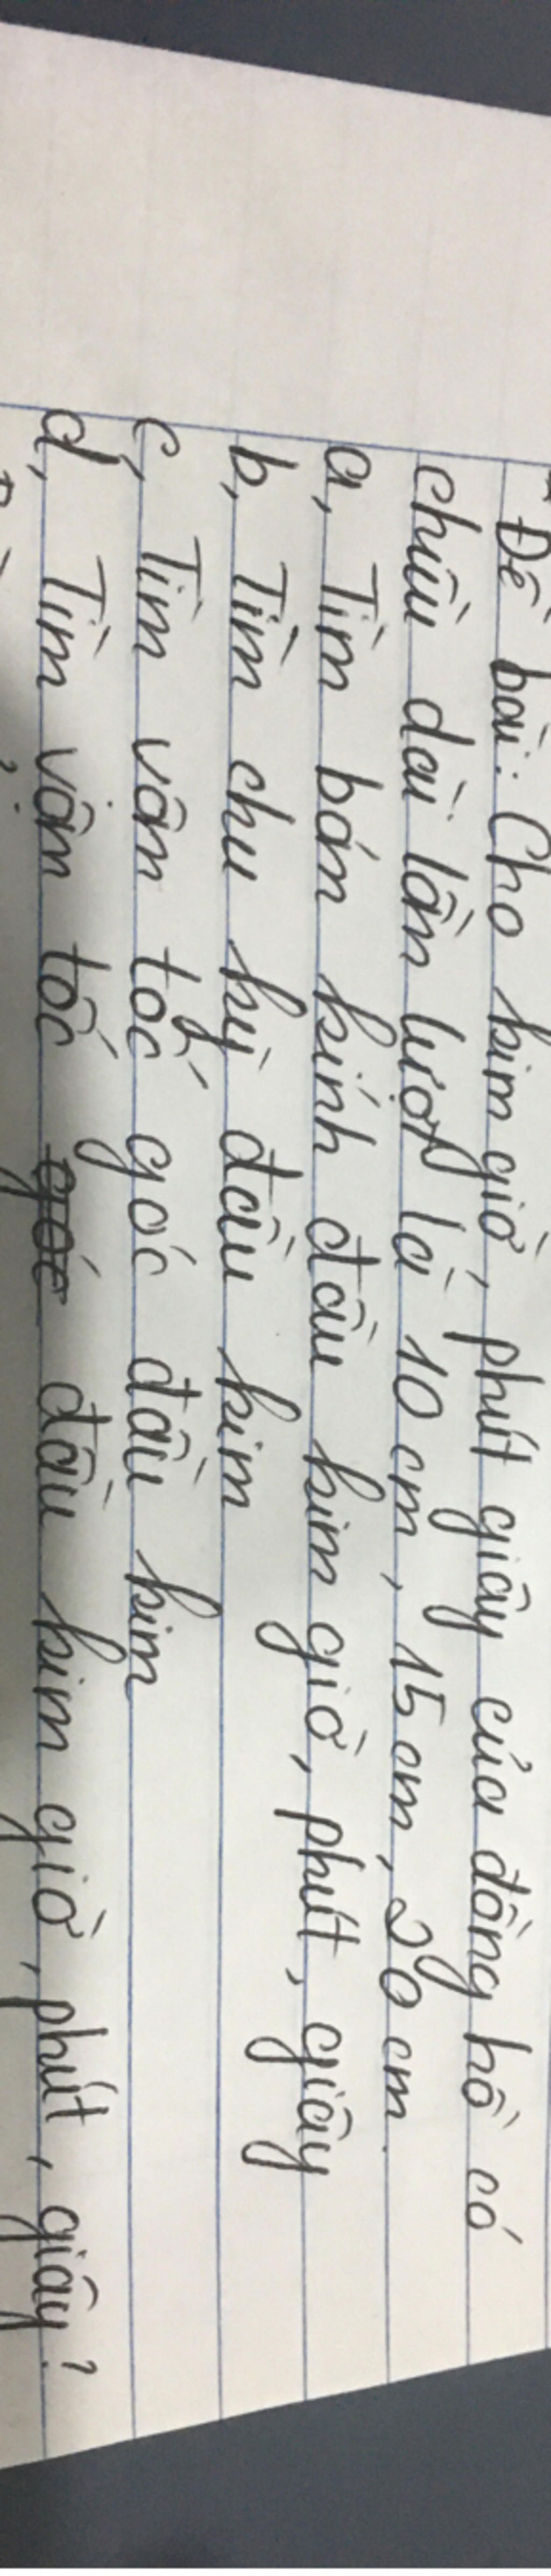 Đề bài: Cho kim giờ, phút giây của đồng hồ có
chiều dài lần lượt là 10 cm, 15 cm, 20 cm.
a, Tìm bán kính đầu kim giờ, phút, giây
b, Tìm chu kỳ đầu kim
c, Tìm vân tốc góc đầu kim
d, Tìm vân tốc đầu kim giờ, phút, giây?